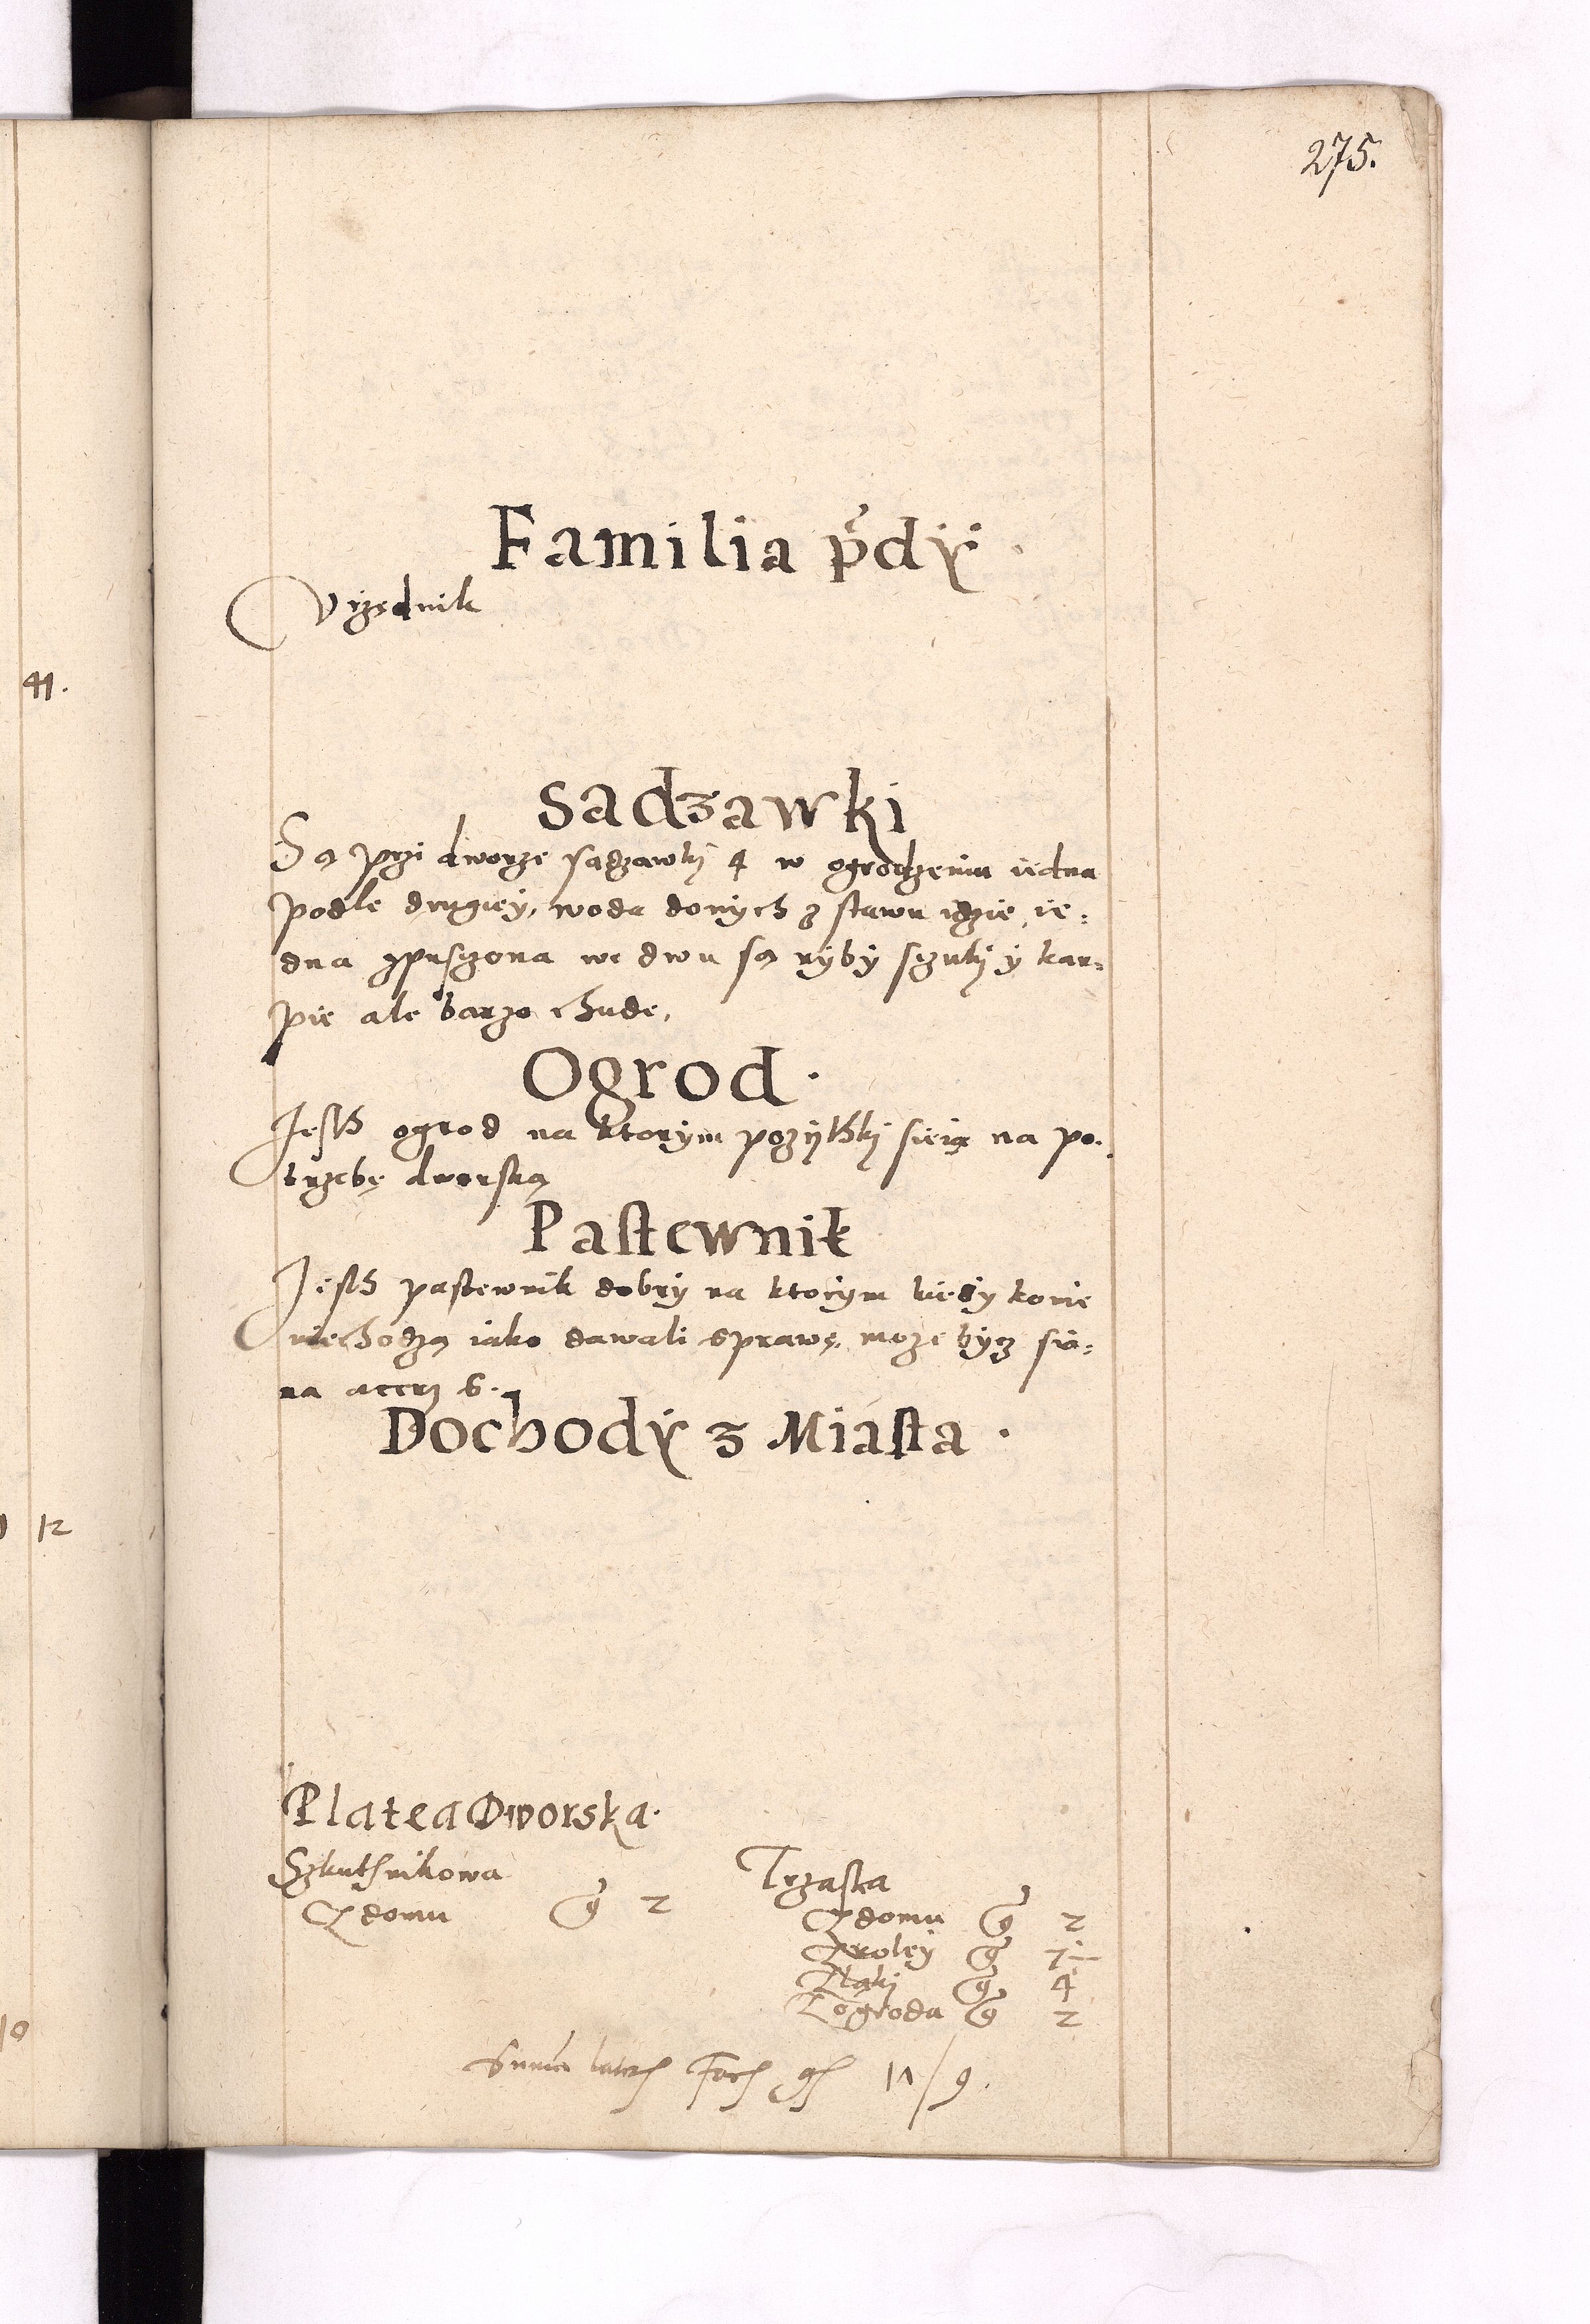 275.
41.
12
10
Familia p̃dÿ
Vrzednik
Sadzawki
Są przi dworze sadzawkj 4 w ogrodzeniu iedna
podle drugiey, woda donych z stawu idzie, ie:
dna zpusczona we dwu są ryby sczukj y kar:
pie ale barzo chude,
Ogrod.
Jesth ogrod na ktorym pozythkj sieią na po.
trzebę dworską
Pastewnik
Jesth pastewnik dobry na ktorym kiedy konie
niechodzą iako dawali sprawę, moze bycz sia:
na acerw 6.
Dochodÿ z Miasta.
Platea Dworska.
Szkuthnikowa
Z domu g 2
Trzaska
Z domu g 2
Z roley g 7
Z łąkj g 4
Z ogroda g 2
Suma lateris Facit 17/9.